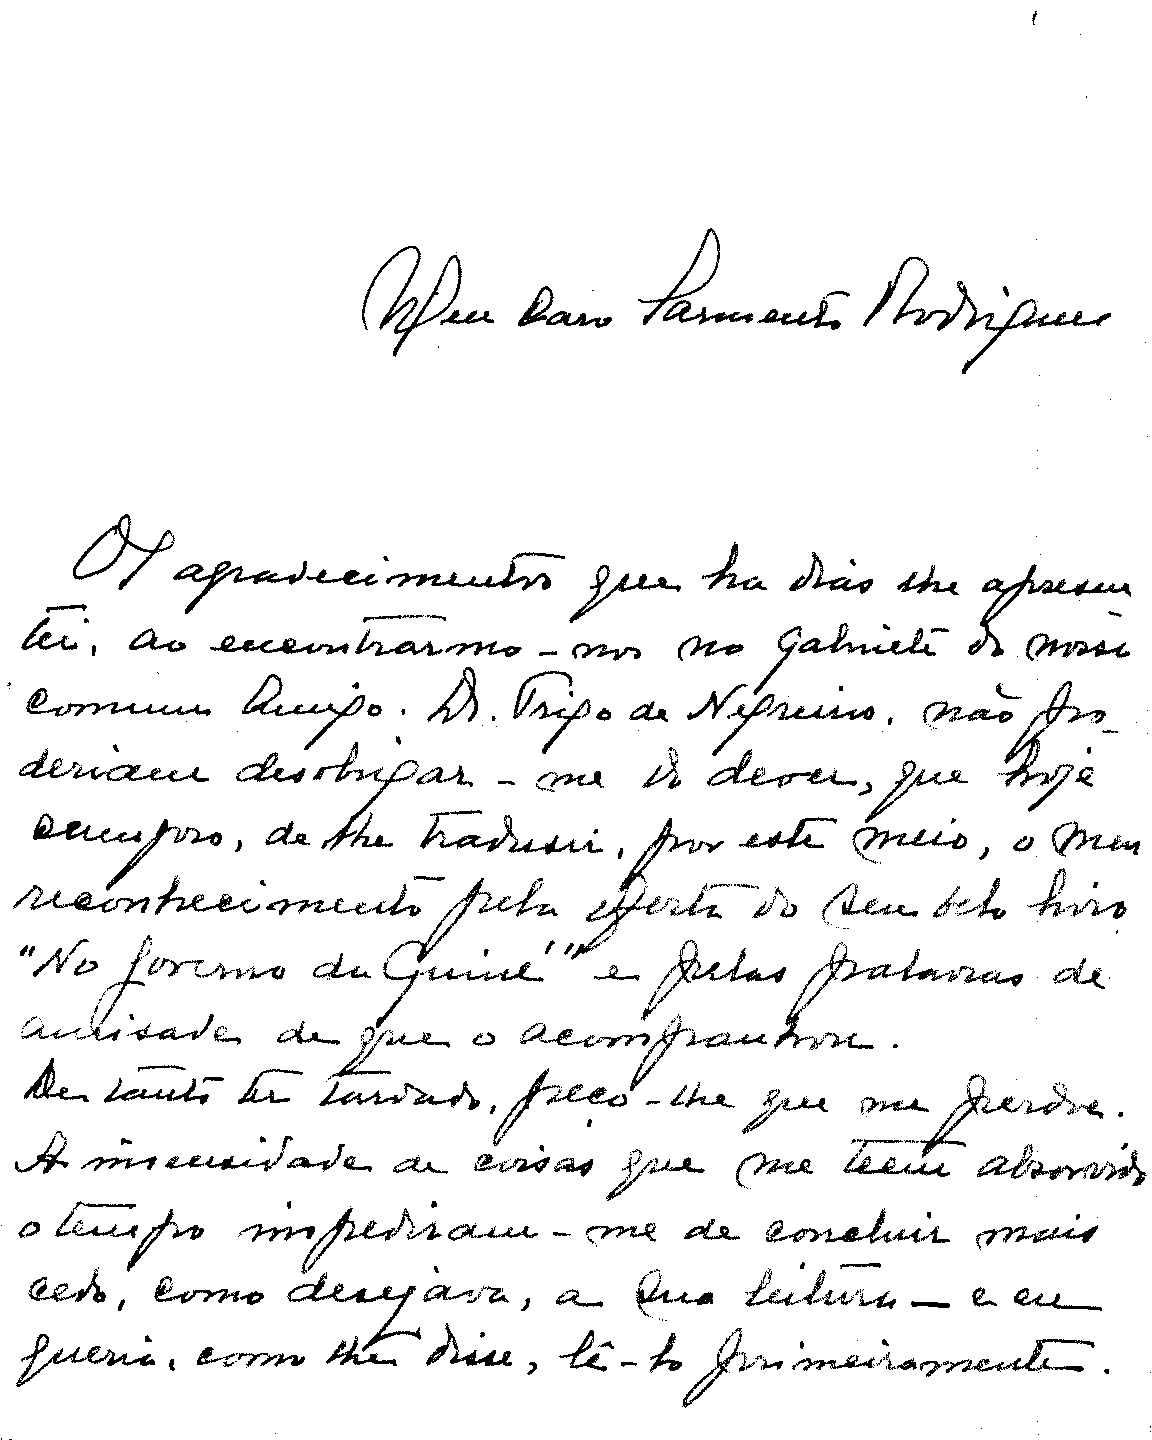 Meu Caro Sarmento Rodrigues
Os agradecimentos que ha dias lhe apresen
tei, ao encontrarmo-nos no gabinete do nosso
comum Amigo. Dr. Trigo de Negreiros, não po-
deriam desobrigar-me do dever, que hoje
cumpro, de lhe traduzir, por este meio, o meu
reconhecimento pela oferta do seu belo livro
"No Governo da Guiné" e pelas palavras de
amisade de que o acompanhou.
De tanto ter tardado, peço-lhe que me perdoe.
A imensidade de coisas que me teem absorvido
o tempo impediram-me de concluir mais
cedo, como desejava, a sua leitura — e eu
queria, como lhe disse, lê-lo primeiramente.